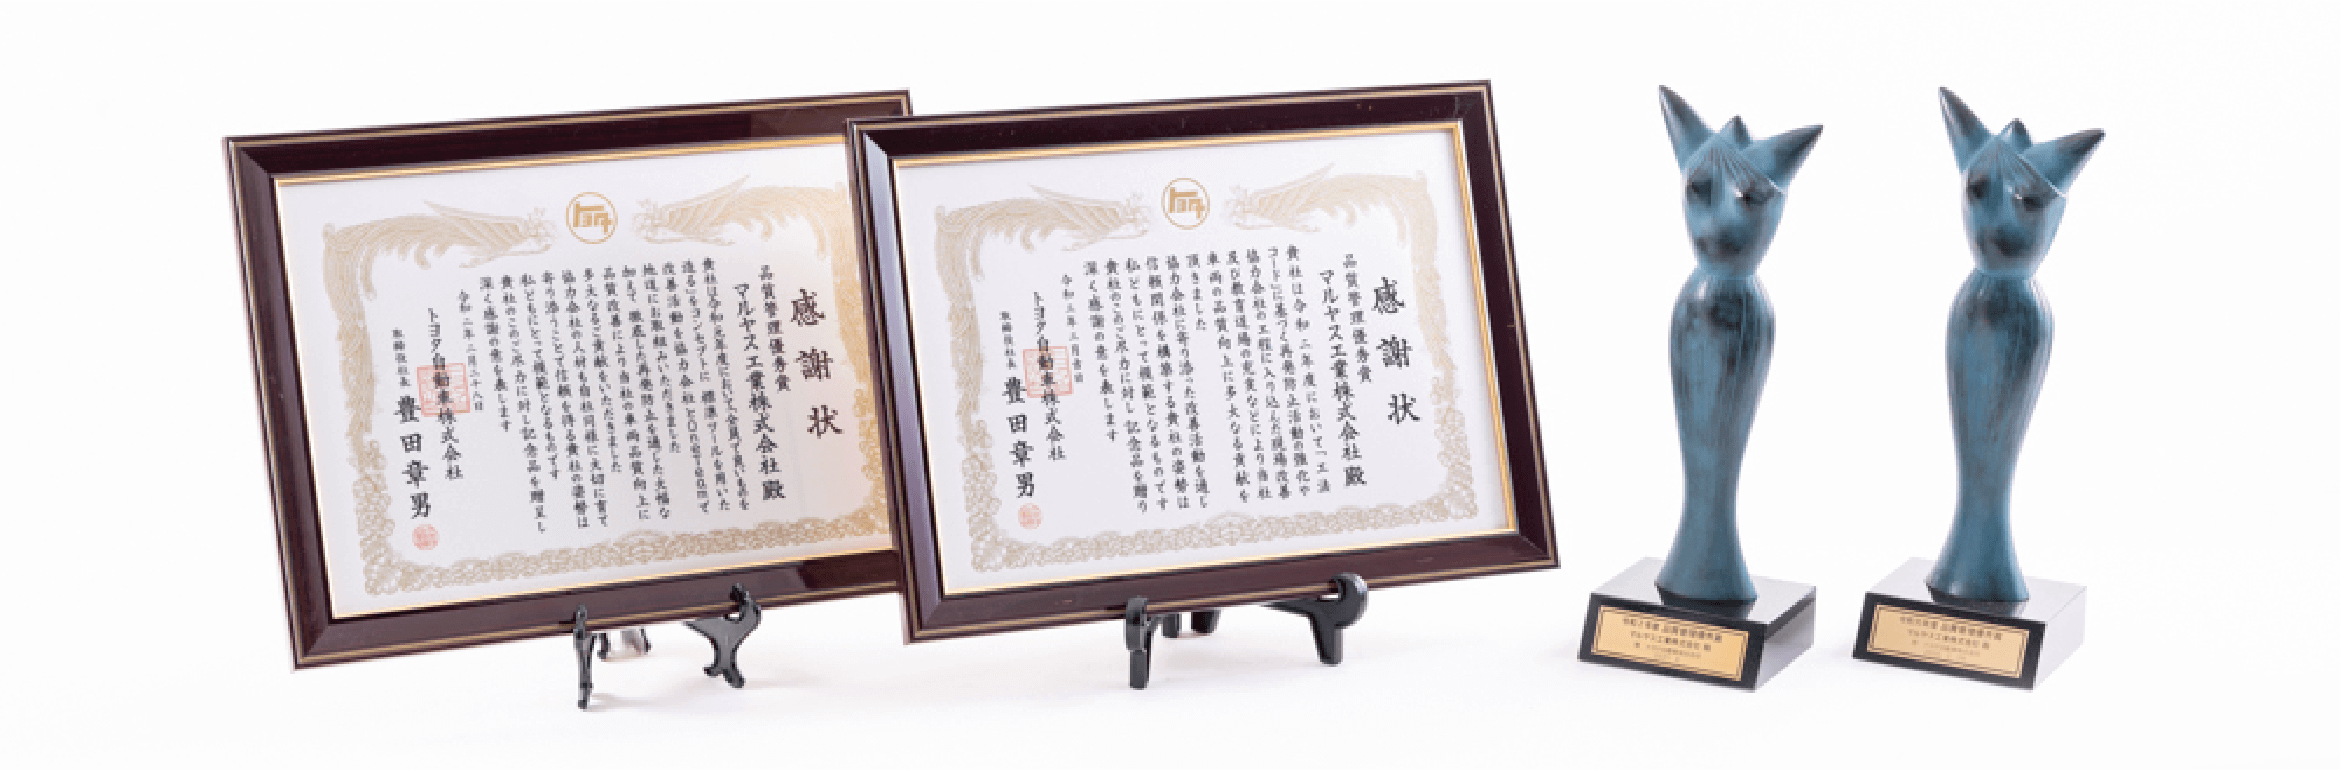 トヨタ
感謝状
品質管理優秀賞
マルヤス工業株式会社殿
貴社は令和元年度において全員で良いものを
造る」をコンセプトに 標準ツールを用いた
改善活動を協力会社とOneteamで
地道にお取組みいただきました
加えて 徹底した再発防止を通じた大幅な
品質改善により当社の車両品質向上に
多大なるご貢献をいただきました
協力会社の人材も自社同様に大切に育て
寄り添うことで信頼を得る貴社の姿勢は
私どもにとって模範となるものです
貴社のこのご尽力に対し記念品を贈呈し
深く感謝の意を表します
令和二年二月二十八日
トヨタ自動車株式会社
取締役社長 豊田章男
トヨタ
感謝状
品質管理優秀賞
マルヤス工業株式会社殿
貴社は令和二年度において「工法
コード」に基づく再発防止活動の強化や
協力会社の工程に入り込んだ現場改善
及び教育道場の充実などにより当社
車両の品質向上に多大なる貢献を
頂きました
協力会社に寄り添った改善活動を通じ
信頼関係を構築する貴社の姿勢は
私どもにとって模範となるものです
貴社のこのご尽力に対し記念品を贈り
深く感謝の意を表します
令和三年三月吉日
トヨタ自動車株式会社
取締役社長 豊田章男
品質管理優秀賞
マルヤス工業株式会社 殿
品質管理優秀賞
マルヤス工業株式会社 殿